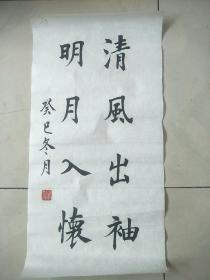 清風出袖
明月入懷
癸巳冬月